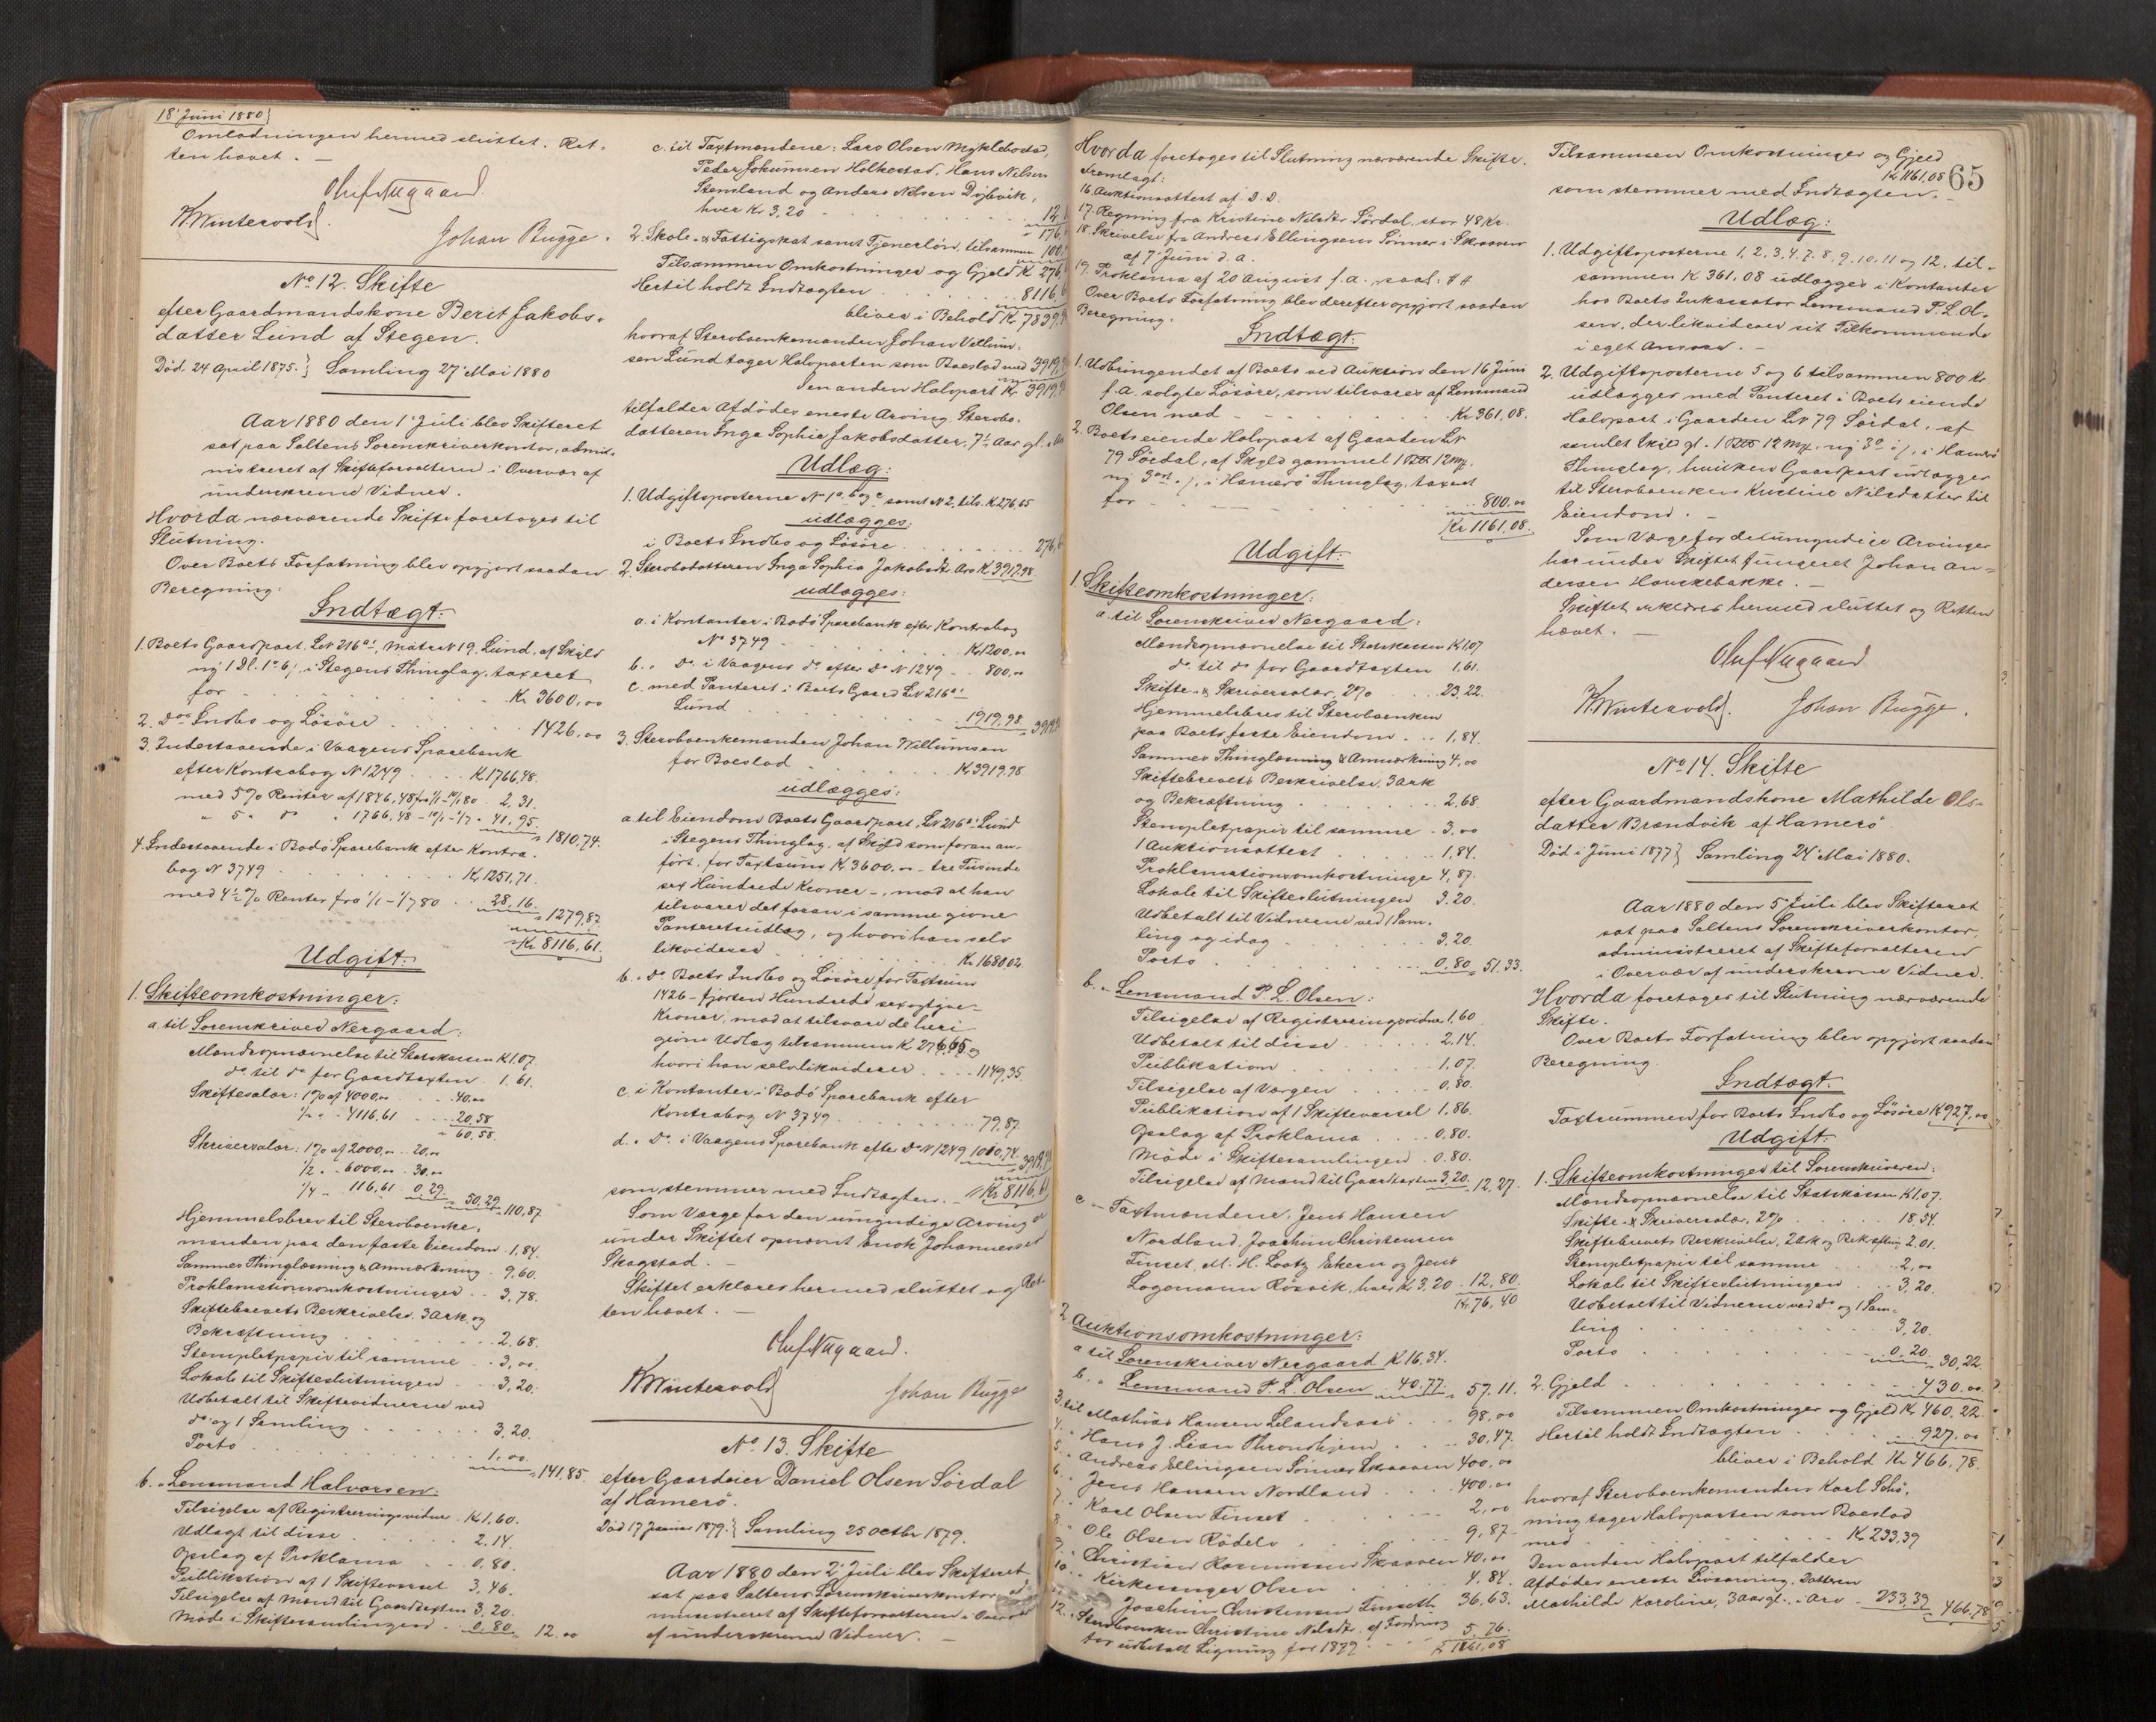 18' Juni 1880
Omladningen hermed sluttet. Ret-
ten hævet. —
Oluf Nergaard
K Wintervold
Johan Bugge.
No 12. Skifte
efter Gaardmandskone Berit Jakobs-
datter Lund af Stegen.
Død 24 April 1875. } Samling 27' Mai 1880
Aar 1880 den 1' Juli blev Skifteret
sat paa Saltens Sorenskriverkontor, admi-
nistreret af Skifteforvalteren i Overvær af
underskrevne Vidner.
Hvorda nærværende Skifte foretages til
Slutning.
Over Boets Forfatning blev opgjort saadan
Beregning:
Indtægt:
1. Boets Gaardpart LN 216 a', Matr N 19, Lund, af Skyld
ny 1 Dl. 1 o 6 /, i Stegens Thinglag, taxeret
for . . . Kr. 3600,00
2. do Indbo og Løsøre . . . 1426,00
3. Indestaaende i Vaagens Sparebank
efter Kontrabog N 1249 . . . K. 1766,48.
med 5% Renter af 1846,48 fra 1/1 - 10/1 80 . 2,31.
" 5 " do " 1766,48 - 10/1 - 1/7 " 41,95 " 1810,74.
4. Indestaaende i Bodø Sparebank efter Kontra-
bog N 3749 . . . Kr. 1251,71.
med 4½% Renter fra 1/1 - 1/7 80 . . 28,16. " 1279,87
Kr 8116,61.
Udgift:
1. Skifteomkostninger:
a. til Sorenskriver Nergaard:
Mændsopnævnelse til Statskassen K 1.07.
do til do for Gaardtaxten . 1,61.
Skiftesalær: 1% af 4000,00 . . 40,00
½ " " 4116,61 . . 20,58
" 60,58.
Skriversalær: 1% af 2000,00 . 20,00
½ " . 6000,00 . 30,00
¼ " 116,61 . 0,29 " 50,29 " 110,87
Hjemmelsbrev til Stervboenke-
manden paa den faste Eiendom . 1,84.
Sammes Thinglæsning & Anmærkning . 9,60.
Proklamationsomkostninger . . 3,78.
Skiftebrevets Beskrivelse. 3 Ark og
Bekræftning . . . 2.68.
Stempletpapir til samme . . 3,00.
Lokale til Skifteslutningen . . 3,20.
Udbetalt til Skiftevidnerne ved
do og 1 Samling . . . 3,20.
Porto . . . 1,00. " 141,85.
b. " Lensmand Halvorsen:
Tilsigelse af Registreringsvidner . Kr 1,60.
Udlagt til disse . . . 2.14.
Opslag af Proklama . . . 0,80.
Publikation af 1 Skiftevarsel 3,46.
Tilsigelse af Mænd til Gaardtaxten 3,20.
Møde i Skiftesamlingen . . 0,80. " 12.00
c. til Taxtmændene: Lars Olsen Myklebostad,
Peder Jokumsen Holkestad, Hans Nilsen
Stensland og Anders Nilsen Dybvik,
hver Kr 3,20 . . . 12,
" 176,
2. Skole- & Fattigskat samt Tjenerløn, tilsammen 100,
Tilsammen Omkostninger og Gjeld K 276,
Hertil holdt Indtægten . . . 8116,
bliver i Behold Kr 7839,
hvoraf Stervboenkemanden Johan Villum-
sen Lund tager Halvparten som Boeslod med 3919,
Den anden Halvpart Kr 3919,
tilfalder Afdødes eneste Arving, Stervbo-
datteren Inga Sophie Jakobsdatter, 7½ Aar gl.
Udlæg:
1. Udgiftsposterne N 1 a, b og c samt N 2, tils. K 276,65
udlægges:
i Boets Indbo og Løsøre . . . 276,
2. Stervbodatteren Inga Sophia Jakobsdtr Arv K 3919.98.
udlægges:
a. i Kontanter i Bodø Sparebank efter Kontrabog
No 3749 . . . Kr. 1200,00
b. " Do. i Vaagens do efter do N 1249 . . 800,00
c. med Panteret i Boets Gaard LN 216 a'
Lund . . . 1919,98 " 3919,
3. Stervboenkemanden Johan Willumsen
for Boeslod . . . Kr. 3919.98
udlægges:
a. til Eiendom Boets Gaardpart, LN 216 a' Lund
i Stegens Thinglag, af Skyld som foran an-
ført, for Taxtsum K 3600.00 - tre Tusinde
sex Hundrede Kroner -, mod at han
tilsvarer det foran i samme givne
Panteretsudlæg, og hvori han selv
likviderer . . . Kr. 1680.02.
b. " Do Boets Indbo og Løsøre for Taxtsum
1426 - fjorten Hundrede sexogtyve -
Kroner, mod at tilsvare de heri
givne Udlæg tilsammen K 276,65 og
hvori han selv likviderer . . . 1149,35.
c. i Kontanter i Bodø Sparebank efter
Kontrabog N 3749 . . . 79,87.
d. " Do. i Vaagens Sparebank efter Do N 1249 1010,74. " 3919,
som stemmer med Indtægten. - Kr 8116,
Som Værge for den umyndige Arving er
under Skiftet opnævnt Enok Johannessen
Skagstad. —
Skiftet erklæres hermed sluttet og Ret-
ten hævet. —
Oluf Nergaard.
K Wintervold
Johan Bugge
No 13. Skifte
efter Gaardeier Daniel Olsen Sørdal
af Hamerø.
Død 17 Januar 1879. } Samling 25 Octbr 1879.
Aar 1880 den 2' Juli blev Skifteret
sat paa Saltens Sorenskriverkontor ad-
ministreret af Skifteforvalteren i Overvær
af underskrevne Vidner. —
Hvorda foretages til Slutning nærværende Skifte.
Fremlagt:
16. Auktionsattest af D. D.
17. Regning fra Kristine Nilsdtr Sørdal, stor 48 Kr.
18. Skrivelse fra Andreas Ellingsens Sønner i Skraaven
af 7' Juni d. a.
19. Proklama af 20 August f. a.
Over Boets Forfatning blev derefter opgjort saadan
Beregning:
Indtægt:
1. Udbringendet af Boets ved Auktion den 16 Juni
f. a. solgte Løsøre, som tilsvares af Lensmand
Olsen med . . . Kr 361,08.
2. Boets eiende Halvpart af Gaarden LN
79 Sørdal, af Skyld gammel 1 Pd 12 My.
ny 3 ort . /, i Hamerø Thinglag, taxeret
for . . . 800.00
Kr 1161.08.
Udgift:
1. Skifteomkostninger:
a. til Sorenskriver Nergaard:
Mændsopnævnelse til Statskassen K 1,07
do til do for Gaardtaxten 1,61.
Skifte- & Skriversalær, 2% . . . 23,22.
Hjemmelsbrev til Stervboenken
paa Boets faste Eiendom . . . 1,84.
Sammes Thinglæsning & Anmærkning 4,00
Skiftebrevets Beskrivelse. 3 Ark
og Bekræftning . . . 2,68
Stempletpapir til samme . 3,00
1 Auktionsattest . . . 1,84.
Proklamationsomkostninge 4,87.
Lokale til Skifteslutningen 3,20.
Udbetalt til Vidnerne ved 1 Sam-
ling og idag . . . 3,20.
Porto . . . 0,80 " 51,33.
b. " Lensmand P. L. Olsen:
Tilsigelse af Registreringsvidner 1,60
Udbetalt til disse . . . 2.14.
Publikation . . . 1,07.
Tilsigelse af Værgen . . . 0,80.
Publikation af 1 Skiftevarsel 1,86.
Opslag af Proklama . . . 0,80.
Møde i Skiftesamlingen . 0.80.
Tilsigelse af Mænd til Gaardtaxten 3,20. " 12,27.
c. — Taxtmændene: Jens Hansen
Nordland, Joachim Christensen
Finset, M. H. Lootz Ekern og Jens
Logemann Røsvik, hver K 3,20 . 12,80.
Kr. 76,40
2. Auktionsomkostninger:
a. til Sorenskriver Nergaard K 16,34.
b. " Lensmand P. L. Olsen 40.77. " 57.11.
3. til Mathias Hansen . . . 98,00
4. " Hans J. Lian Throndhjem . . . 30,47.
5. " Andreas Ellingsen Sønner Skraaven 400,00
6. " Jens Hansen Nordland . . . 400,00
7. " Karl Olsen Finset . . . 2,00
8. " Ole Olsen Rödelv . . . 9,87
9. " Christian Rasmussen Skraaven 40,00
10. " Kirkesanger Olsen . . . 4,84.
Joachim Christensen Finseth 36,63.
12. " Stervboenken Christine Nilsdtr, af Fordring
for udbetalt Ligning for 1879 . . . 5,76.
K 1161,08
65
Tilsammen Omkostninger og Gjeld
Kr 1161,08
som stemmer med Indtægten. —
Udlæg:
1. Udgiftsposterne 1, 2, 3, 4, 7, 8, 9, 10, 11 og 12, til-
sammen K 361,08 udlægges i Kontanter
hos Boets Inkassator Lensmand P. L. Ol-
sen, der likviderer sit Tilkommende
i eget Ansvar. —
2. Udgiftsposterne 5 og 6 tilsammen 800 Kr.
udlægges med Panteret i Boets eiende
Halvpart i Gaarden LN 79 Sørdal, af
samlet Skyld gl. 1 Pd 12 My, ny 3 o . /, i Hamerø
Thinglag, hvilken Gaardpart udlægges
til Stervboenken Kristine Nilsdatter til
Eiendom. —
Som Værge for de umyndige Arvinger
har under Skiftet fungeret Johan An-
dersen Hauckebakke. —
Skiftet erklæres hermed sluttet og Retten
hævet. —
Oluf Nergaard
K Wintervold. Johan Bugge.
No 14. Skifte
efter Gaardmandskone Mathilde Ols-
datter Brændvik af Hamerø.
Død i Juni 1877 } Samling 24' Mai 1880.
Aar 1880 den 5 Juli blev Skifteret
sat paa Saltens Sorenskriverkontor,
administreret af Skifteforvalteren
i Overvær af underskrevne Vidner.
Hvorda foretages til Slutning nærværende
Skifte.
Over Boets Forfatning blev opgjort saadan
Beregning.
Indtægt:
Taxtsummen for Boets Indbo og Løsøre K 927,00
Udgift:
1. Skifteomkostninger til Sorenskriveren:
Mændsopnævnelse til Statskassen K 1,07.
Skifte- & Skriversalær, 2% . . . 18,54.
Skiftebrevets Beskrivelse, 2 Ark og Bekræftng 2.01.
Stempletpapir til samme . . . 2,00
Lokale til Skifteslutningen . . . 3,20.
Udbetalt til Vidnerne ved do og 1 Sam-
ling . . . 3,20.
Porto . . . 0,20. " 30,22.
2. Gjeld . . . 430.00
Tilsammen Omkostninger og Gjeld Kr 460,22.
Hertil holdt Indtægten . . . 927.00
bliver i Behold Kr 466,78.
hvoraf Stervboenkemanden Karl Schø-
ning tager Halvparten som Boeslod
med . . . Kr 233,39
Den anden Halvpart tilfalder
Afdødes eneste Livsarving, Datteren
Mathilde Karoline, 3 Aar gl. - Arv . 233,39 " 466,78